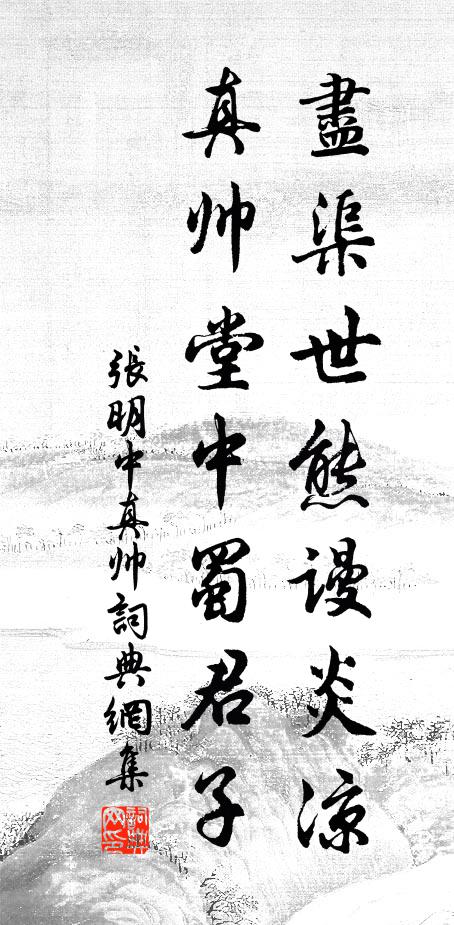 盡渠世態謾炎涼
真帅堂中蜀君子
張明中真帅詞典網集